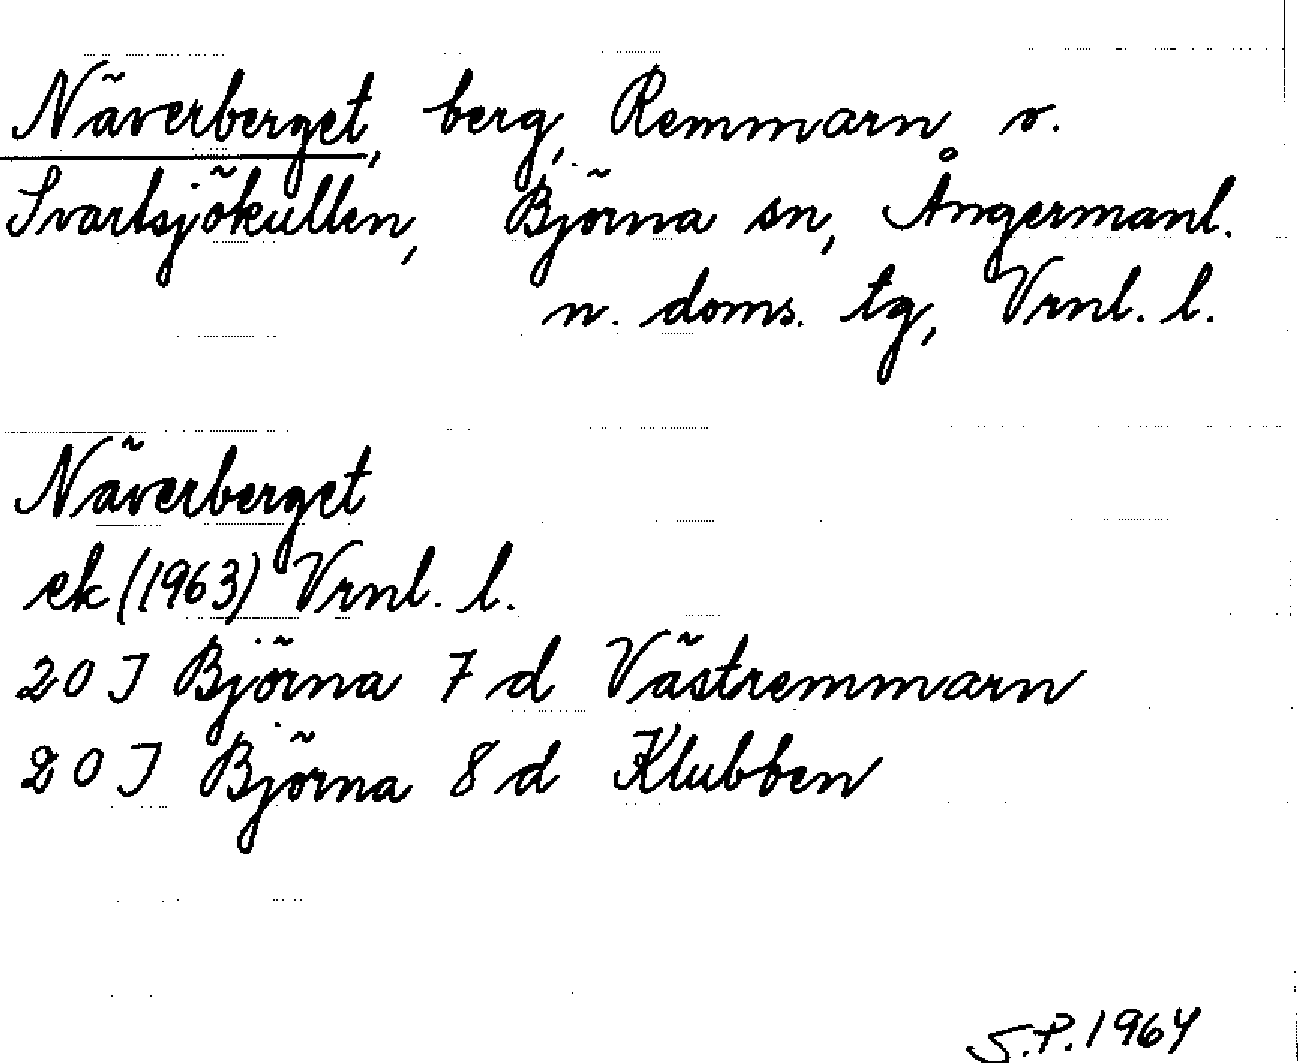 Näverberget, berg, Remmarn o.
Svartsjökullen, Björna sn, Ångermanl.
n. doms. tg, Vrnl. l.
Näverberget
ek (1963) Vrnl. l.
20 J Björna 7 d Västremmarn
20 J Björna 8 d Klubben
S.P. 1964